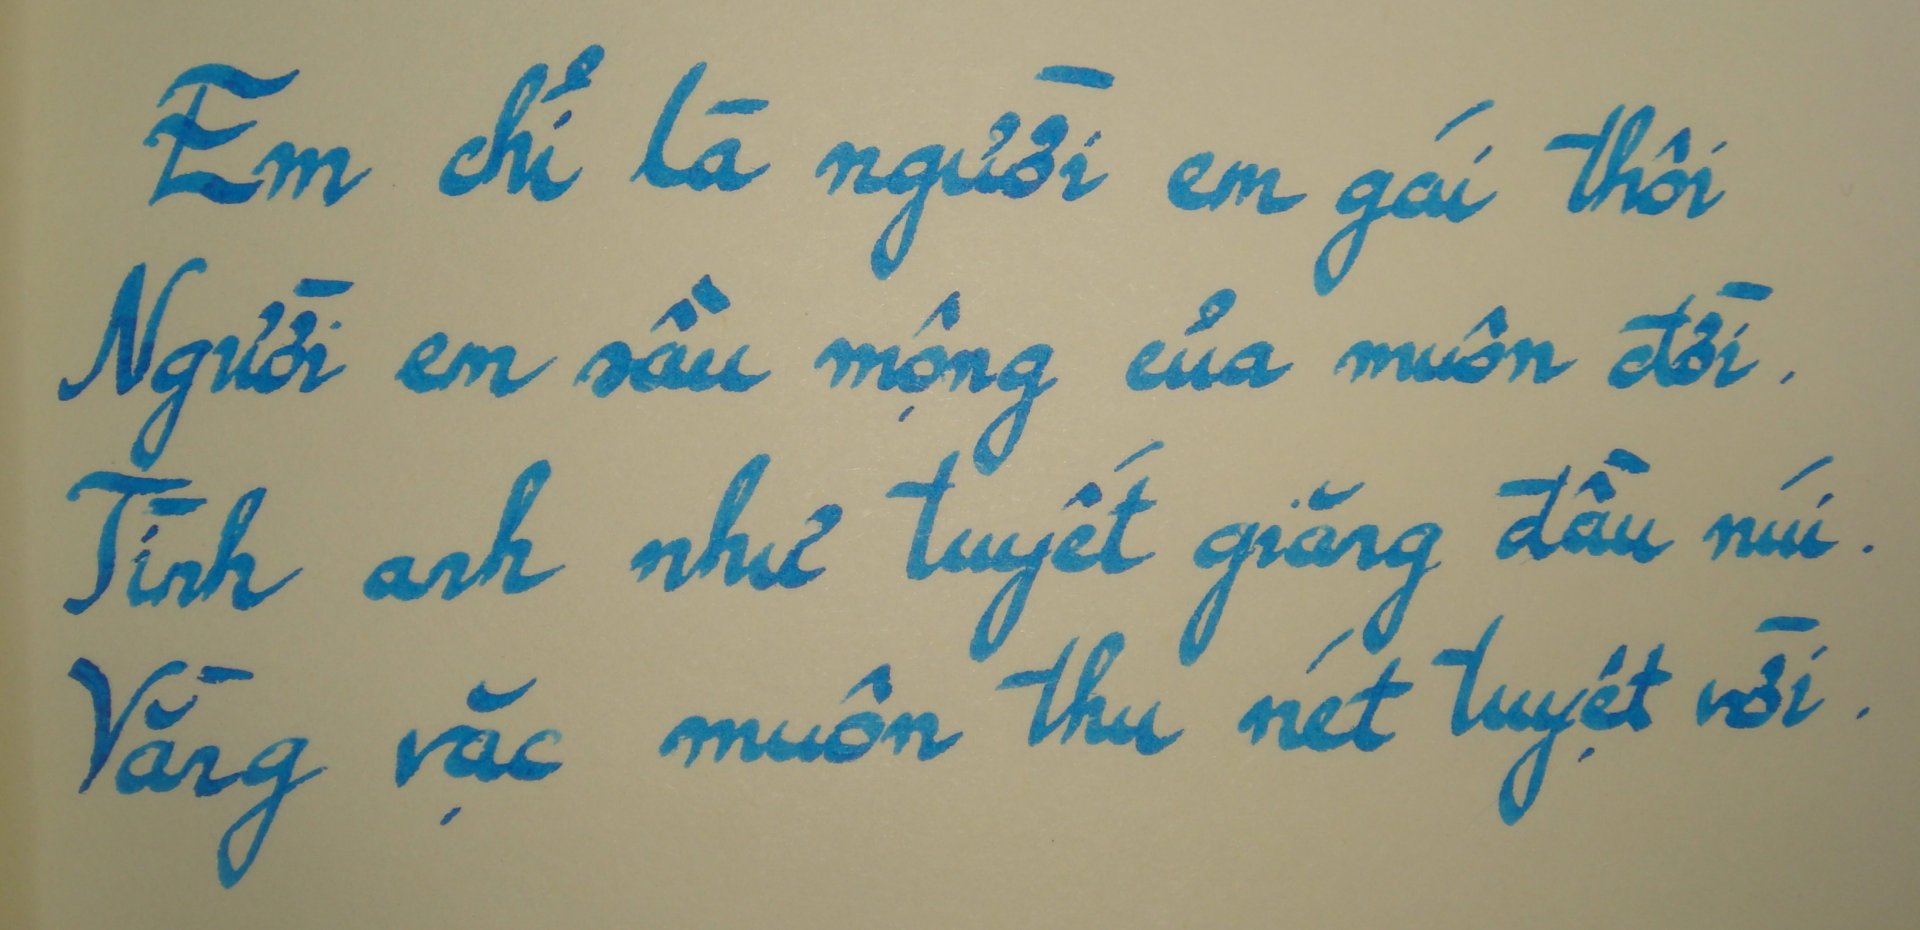 Em chỉ là người em gái thôi
Người em sầu mộng của muôn đời.
Tình anh như tuyết giăng đầu núi.
Vằng vặc muôn thu nét tuyệt vời.